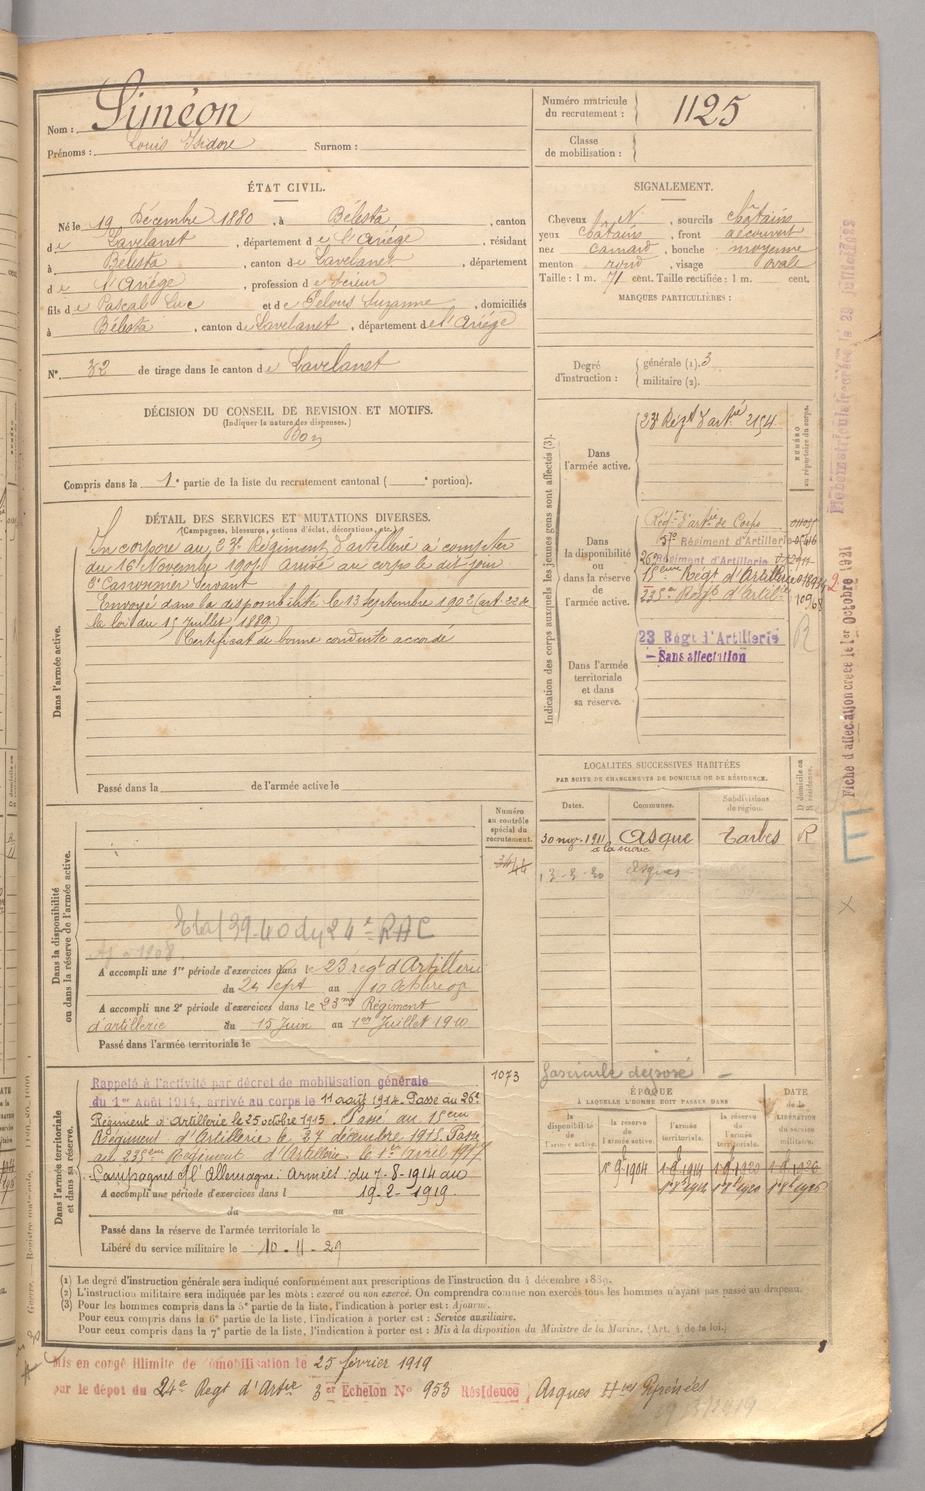 Nom : Siméon
Prénoms : Louis Isidore Surnom :
Numéro matricule du recrutement : 1125
Classe de mobilisation :
ÉTAT CIVIL.
Né le 19 Décembre 1880, à Bélesta, canton
de Lavelanet, département de l'Ariège, résidant
à Bélesta, canton de Lavelanet, département
de l'Ariège, profession de
fils de Pascal Luc et de Pélous Suzanne, domiciliés
à Bélesta, canton de Lavelanet, département de l'Ariège
N° 32 de tirage dans le canton de Lavelanet
SIGNALEMENT.
Cheveux N, sourcils châtains
yeux châtains, front découvert
nez camard, bouche moyenne
menton rond, visage ovale
Taille : 1 m. 71 cent. Taille rectifiée : 1 m. cent.
MARQUES PARTICULIÈRES :
Degré d'instruction : générale (1). 3
militaire (2).
DÉCISION DU CONSEIL DE REVISION ET MOTIFS.
(Indiquer la nature des dispenses.)
Bon
Compris dans la 1e partie de la liste du recrutement cantonal ( e portion).
DÉTAIL DES SERVICES ET MUTATIONS DIVERSES.
(Campagnes, blessures, actions d'éclat, décorations, etc.)
Dans l'armée active.
Incorporé au 23e Régiment d'artillerie à compter
du 16 Novembre 1901. Arrivé au corps le dit jour
2e Canonnier Servant
Envoyé dans la disponibilité le 13 septembre 1902 (art. 22 de
la loi du 15 Juillet 1889)
Certificat de bonne conduite accordé
Passé dans la de l'armée active le
Indication des corps auxquels les jeunes gens sont affectés (3).
NUMÉRO au répertoire du corps.
Dans l'armée active.
23e Régt d'artrie 2154
Dans la disponibilité ou dans la réserve de l'armée active.
Régt d'artie de Corps
Régiment d'Artillerie
26e Régiment d'Artillerie
15ème Régt d'Artillerie
235e Régt d'Artillie
R
23 Régt d'Artillerie
- Sans affectation
Dans l'armée territoriale et dans sa réserve.
Fiche d'affectation créée le 1er Octobre 1921
LOCALITÉS SUCCESSIVES HABITÉES
PAR SUITE DE CHANGEMENTS DE DOMICILE OU DE RÉSIDENCE.
D domicile ou R résidence.
Dates. Communes. Subdivisions de région.
30 nov. 1911 Asque Tarbes R
à la scierie
13-3-20 Asques
E
Dans la disponibilité ou dans la réserve de l'armée active.
Numéro au contrôle spécial du recrutement.
Etat 39-40 du 24e RAC
A accompli une 1re période d'exercices dans le 23 régt d'Artillerie
du 24 Sept au 10 Octobre 08
A accompli une 2e période d'exercices dans le 23me Régiment
d'artillerie du 15 Juin au 1er Juillet 1910
Passé dans l'armée territoriale le
Dans l'armée territoriale et dans sa réserve.
1073
Rappelé à l'activité par décret de mobilisation générale
du 1er Août 1914, arrivé au corps le 11 août 1914. Passé au 26e
Régiment d'Artillerie le 25 octobre 1915. Passé au 15ème
Régiment d'Artillerie le 27 décembre 1915. Passé
au 235ème Régiment d'Artillerie le 1er avril 1917.
Campagnes c/ l'Allemagne : Armées du 7-8-1914 au
A accompli une période d'exercices dans l 19-2-1919.
du au
Passé dans la réserve de l'armée territoriale le
Libéré du service militaire le 10-11-29
fascicule déposé
ÉPOQUE
À LAQUELLE L'HOMME DOIT PASSER DANS
DATE de la LIBÉRATION du service militaire.
la disponibilité de l'armée active. la réserve de l'armée active. l'armée territoriale. la réserve de l'armée territoriale.
1r 9bre 1904 1-8-1914 1-8-1920 1-8-1926
(1) Le degré d'instruction générale sera indiqué conformément aux prescriptions de l'instruction du 4 décembre 1889.
(2) L'instruction militaire sera indiquée par les mots : exercé ou non exercé. On comprendra comme non exercés tous les hommes n'ayant pas passé au drapeau.
(3) Pour les hommes compris dans la 5e partie de la liste, l'indication à porter est : Ajourné.
Pour ceux compris dans la 6e partie de la liste, l'indication à porter est : Service auxiliaire.
Pour ceux compris dans la 7e partie de la liste, l'indication à porter est : Mis à la disposition du Ministre de la Marine. (Art. 4 de la loi.)
Mis en congé illimité de démobilisation le 25 février 1919
par le dépôt du 24e Régt d'Artie 3er Echelon N° 953 Résidence Asques Htes Pyrénées